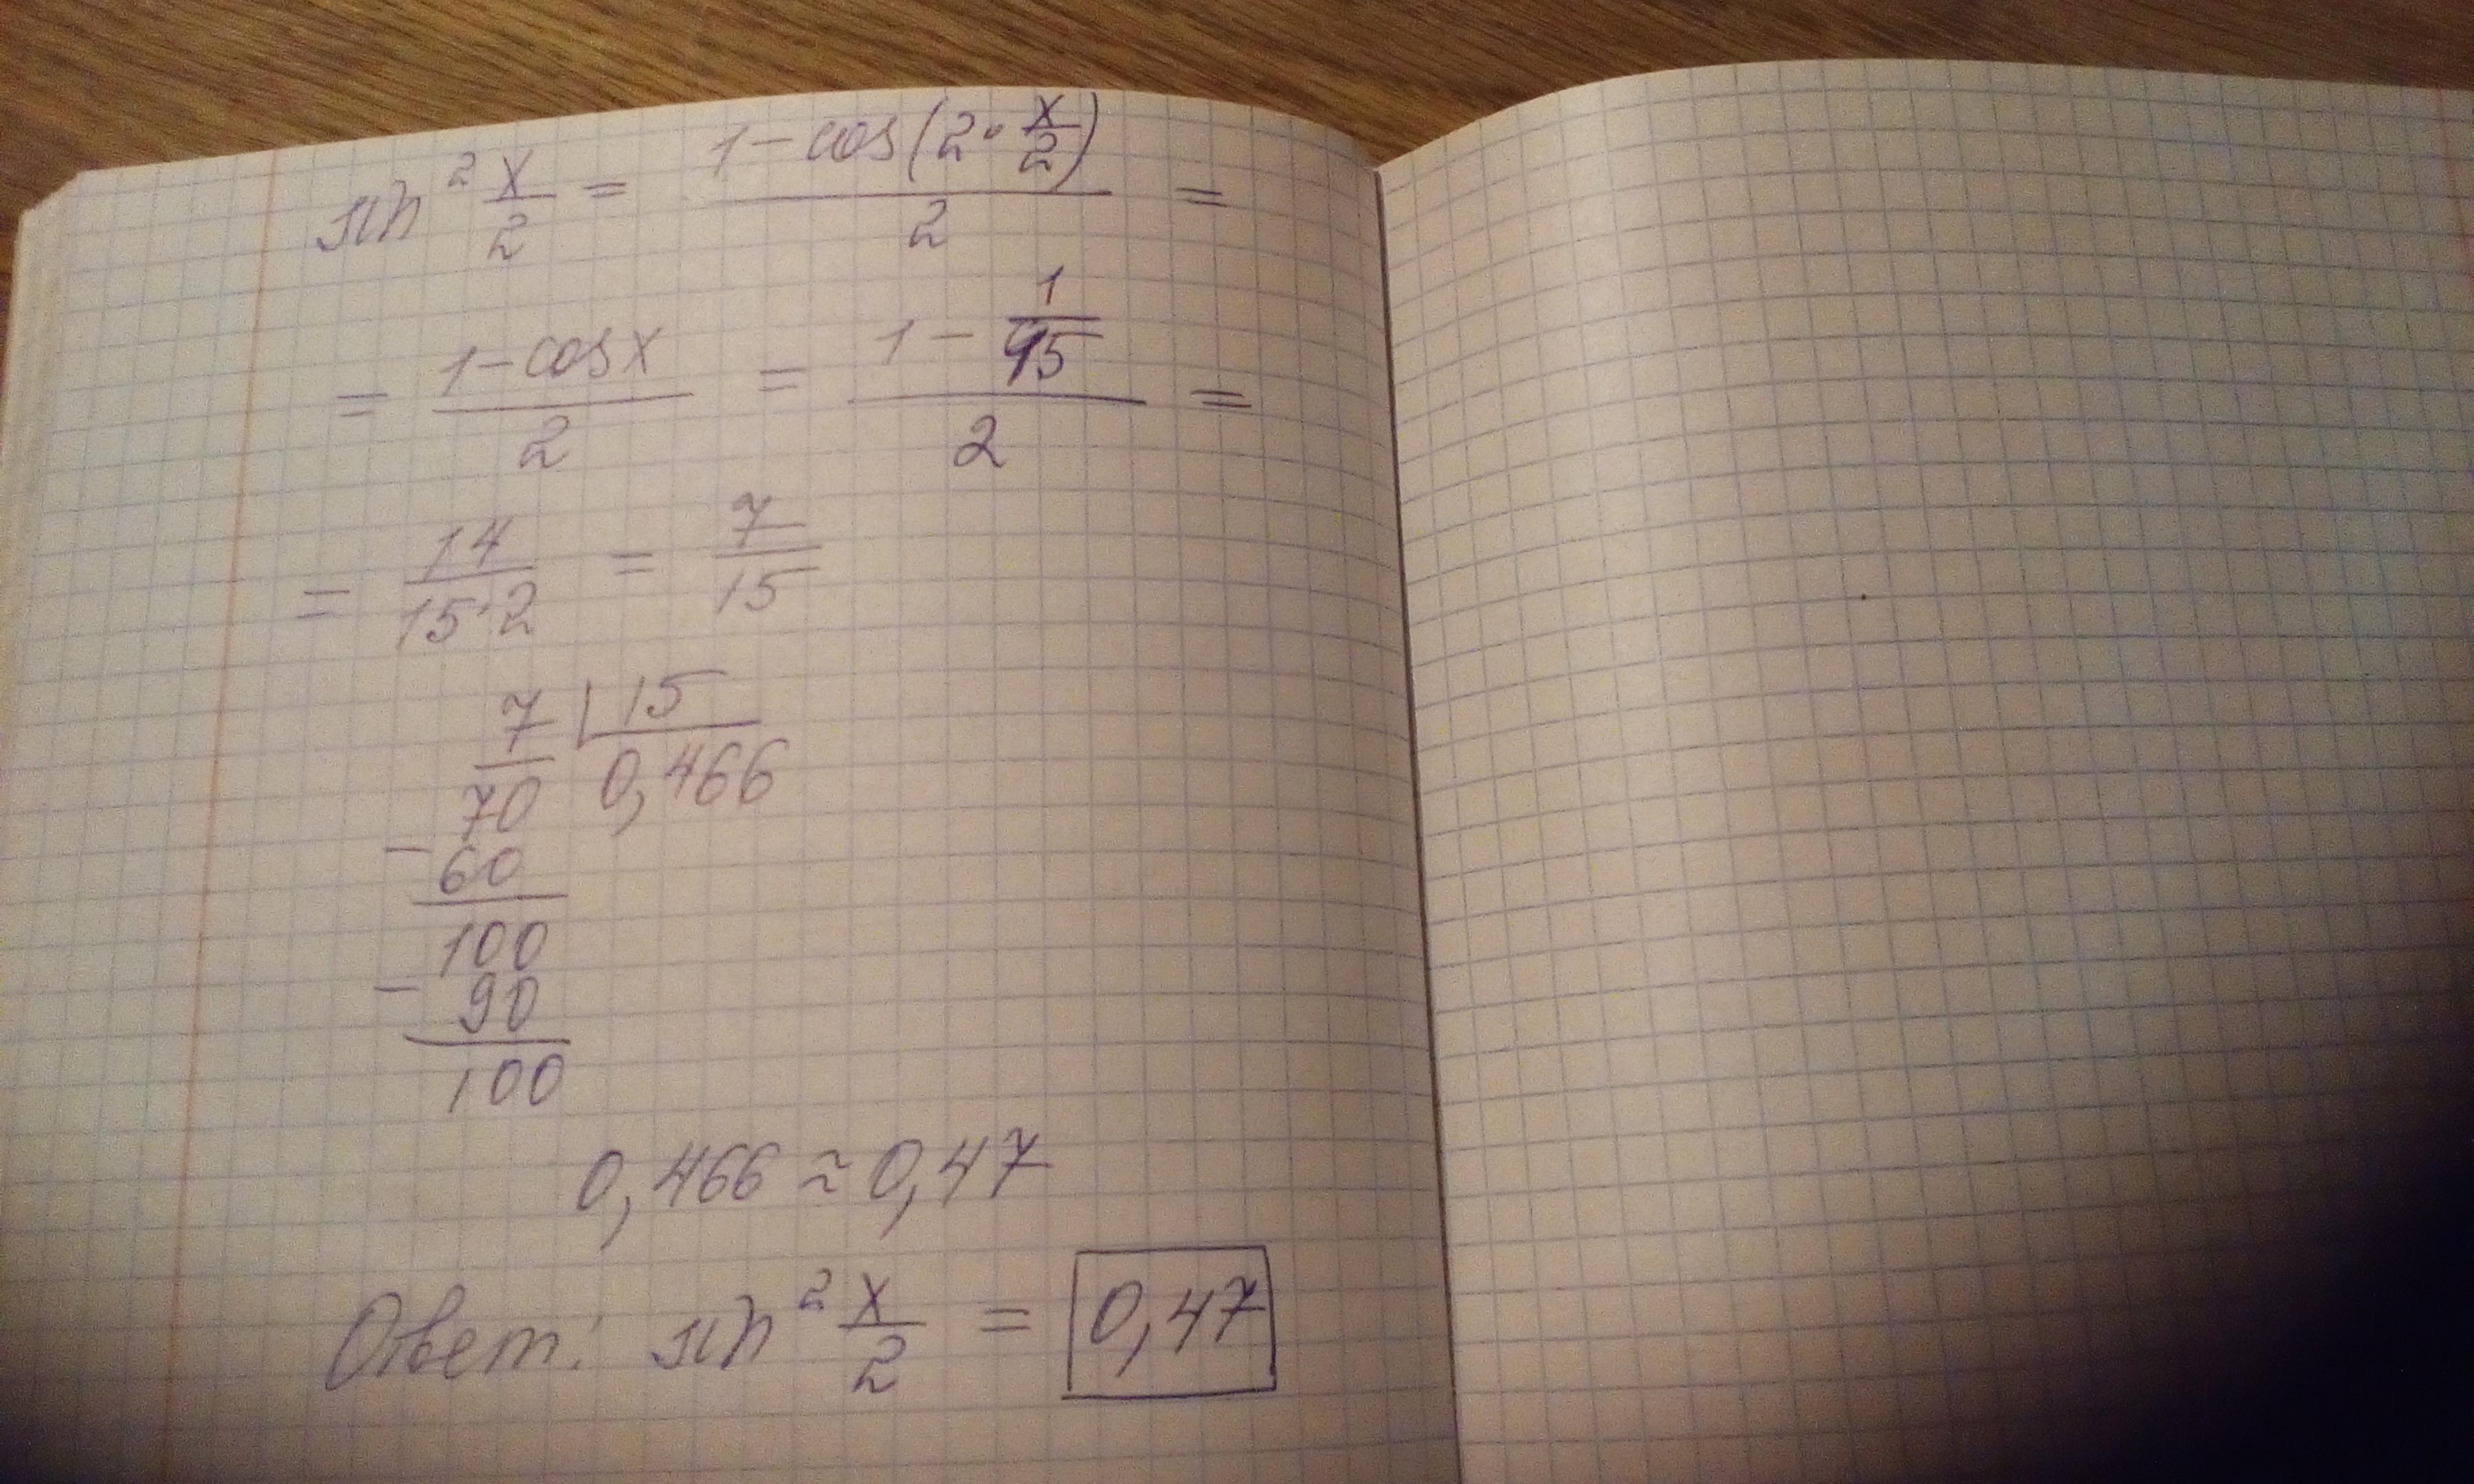 sin² x/2 = (1 - cos(2 · x/2))/2 =
= (1 - cos x)/2 = (1 - 1/15)/2 =
= 14/(15·2) = 7/15
7 | 15
70 0,466
- 60
100
- 90
100
0,466 ≈ 0,47
Ответ: sin² x/2 = 0,47